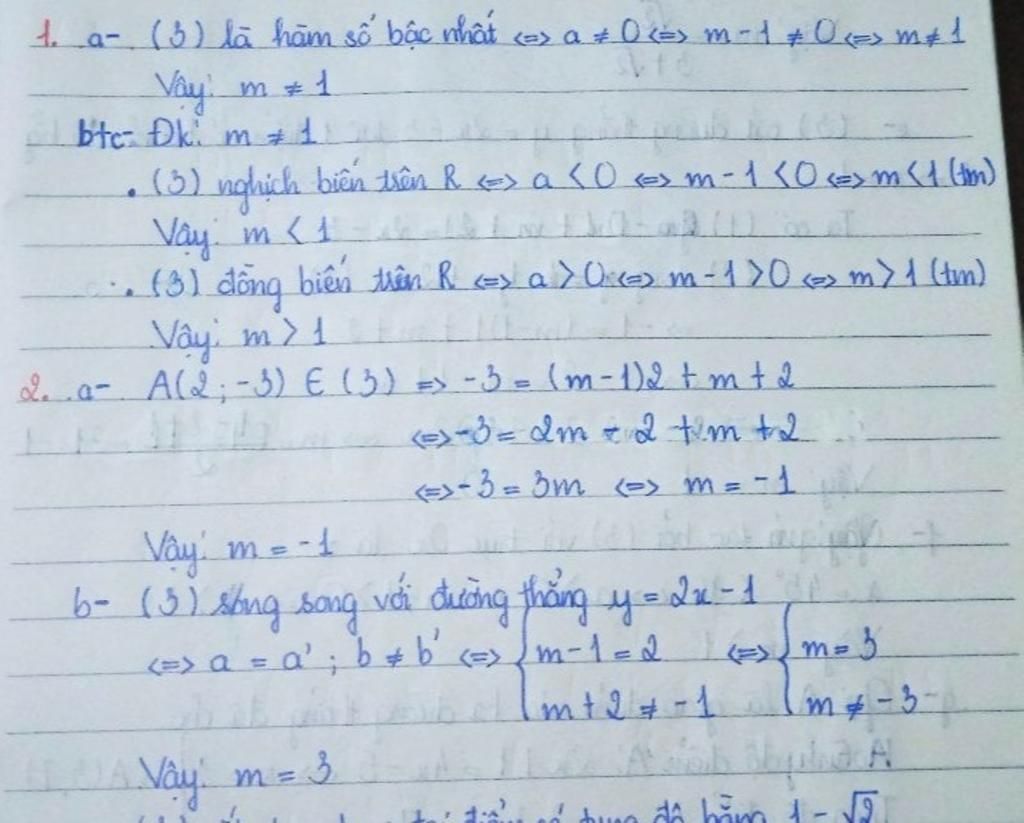 1. a- (3) là hàm số bậc nhất <=> a ≠ 0 <=> m - 1 ≠ 0 <=> m ≠ 1
Vậy: m ≠ 1
b+c- Đk: m ≠ 1
. (3) nghịch biến trên R <=> a < 0 <=> m - 1 < 0 <=> m < 1 (tm)
Vậy: m < 1
. (3) đồng biến trên R <=> a > 0 <=> m - 1 > 0 <=> m > 1 (tm)
Vậy: m > 1
2. a- A(2; -3) ∈ (3) => -3 = (m-1)2 + m + 2
<=> -3 = 2m - 2 + m + 2
<=> -3 = 3m <=> m = -1
Vậy: m = -1
b- (3) sóng song với đường thẳng y = 2x - 1
<=> a = a' ; b ≠ b' <=> { m - 1 = 2 <=> { m = 3
m + 2 ≠ -1 m ≠ -3
Vậy: m = 3
điểm có tung độ bằng 1 - √2